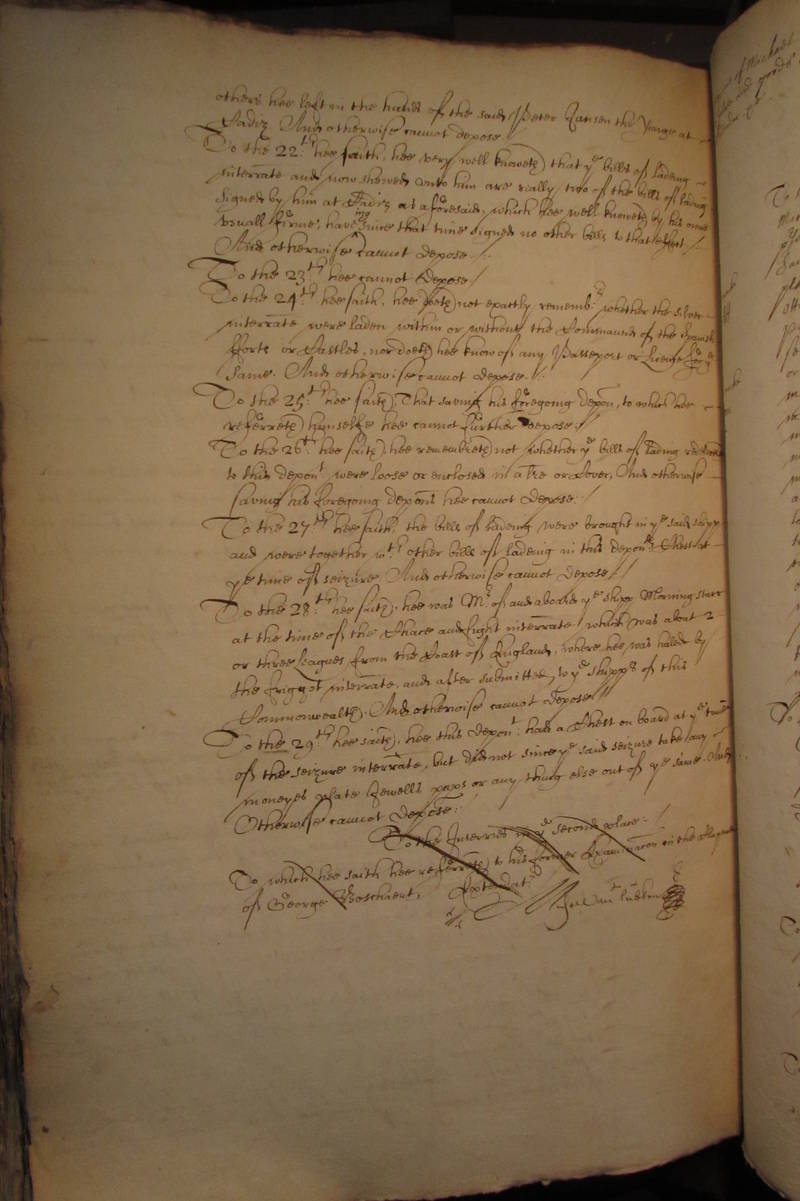 others hee left in the hands of the said Peter Jansen the Yonge at
Cadiz And otherwise cannot depose./
To the 22th hee saith, hee very well knoweth that ye bills of lading
interrate and now shewed unto him are really two of the bills of lading
signed by him at Cadiz as aforesaid, which hee well knoweth by his owne
usuall firme, haveing since that time signed no other bills to that effect./
And otherwise cannot depose./
To the 23th hee cannot depose/
To the 24th hee saith, hee doeth not exactly rememb:r whether the silver
interrate were laden within or without the Command of the Spanish
fforts or Castles, nor doeth hee know of any Passeport or License for ye
same. And otherwise cannot depose./
To the 25th hee saith, That saving his foregoing depon, to which hee
referreth himselfe hee cannot further depose:/
To the 26th hee saith, hee remembreth not whether ye bills of lading
to this depont were loose or enclosed in a tre or Cover, And otherwise
saving his foregoing depons hee cannot depose:/
To the 27th hee saith, the bills of ladeing were brought in ye said shipp
and were together wth other bills of ladeing in this deponts Chest at
ye time of seizure And otherwise cannot depose//
To the 28th hee saith, hee was Mr of and aboard ye shipp Morning starr
at the time of the Chace and fight interrate which was about 2
or three leagues from the Coast of England, where hee was haled by
the friggot interrate, and after submitted to ye shipps of this
Commonwealth. And otherwise cannot depose//
To the 29th hee saith, hee this depont had a Chest on board at ye time
of the seizure interrate, but did not since ye said seizure take any
moneyes plate Jewells paprs or any thing else out of ye same. And
Otherwise cannot depose:/
To the Interries in ye second place:/
To which hee saith hee referreth to his former Examinacon in the
of George Boschaert,